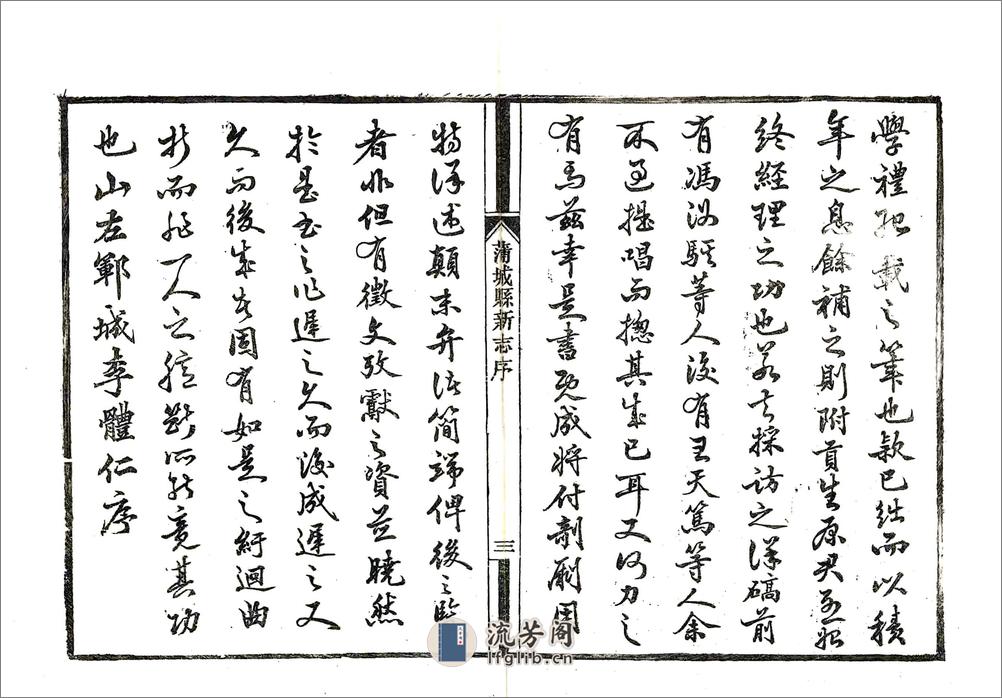 學禮紀載之筆也款已絀而以積
年之息餘補之則附貢生原尹
終經理之功也若夫採訪之詳確前
有馮汝驥等人後有王天篤等人余
不過提唱而揔其成已耳又何力之
有焉茲幸是書既成將付剞劂用
特詳述顛末弁諸簡端俾後之臨
者非但有徵文攷獻之資並曉然
於是書之作遲之久而後成遲之又
久而後成者固有如是之紆迴曲
折而非一人之臆斷所能竟其功
也山左鄆城李體仁序
蒲城縣新志序
三
流芳阁
lfglib.cn